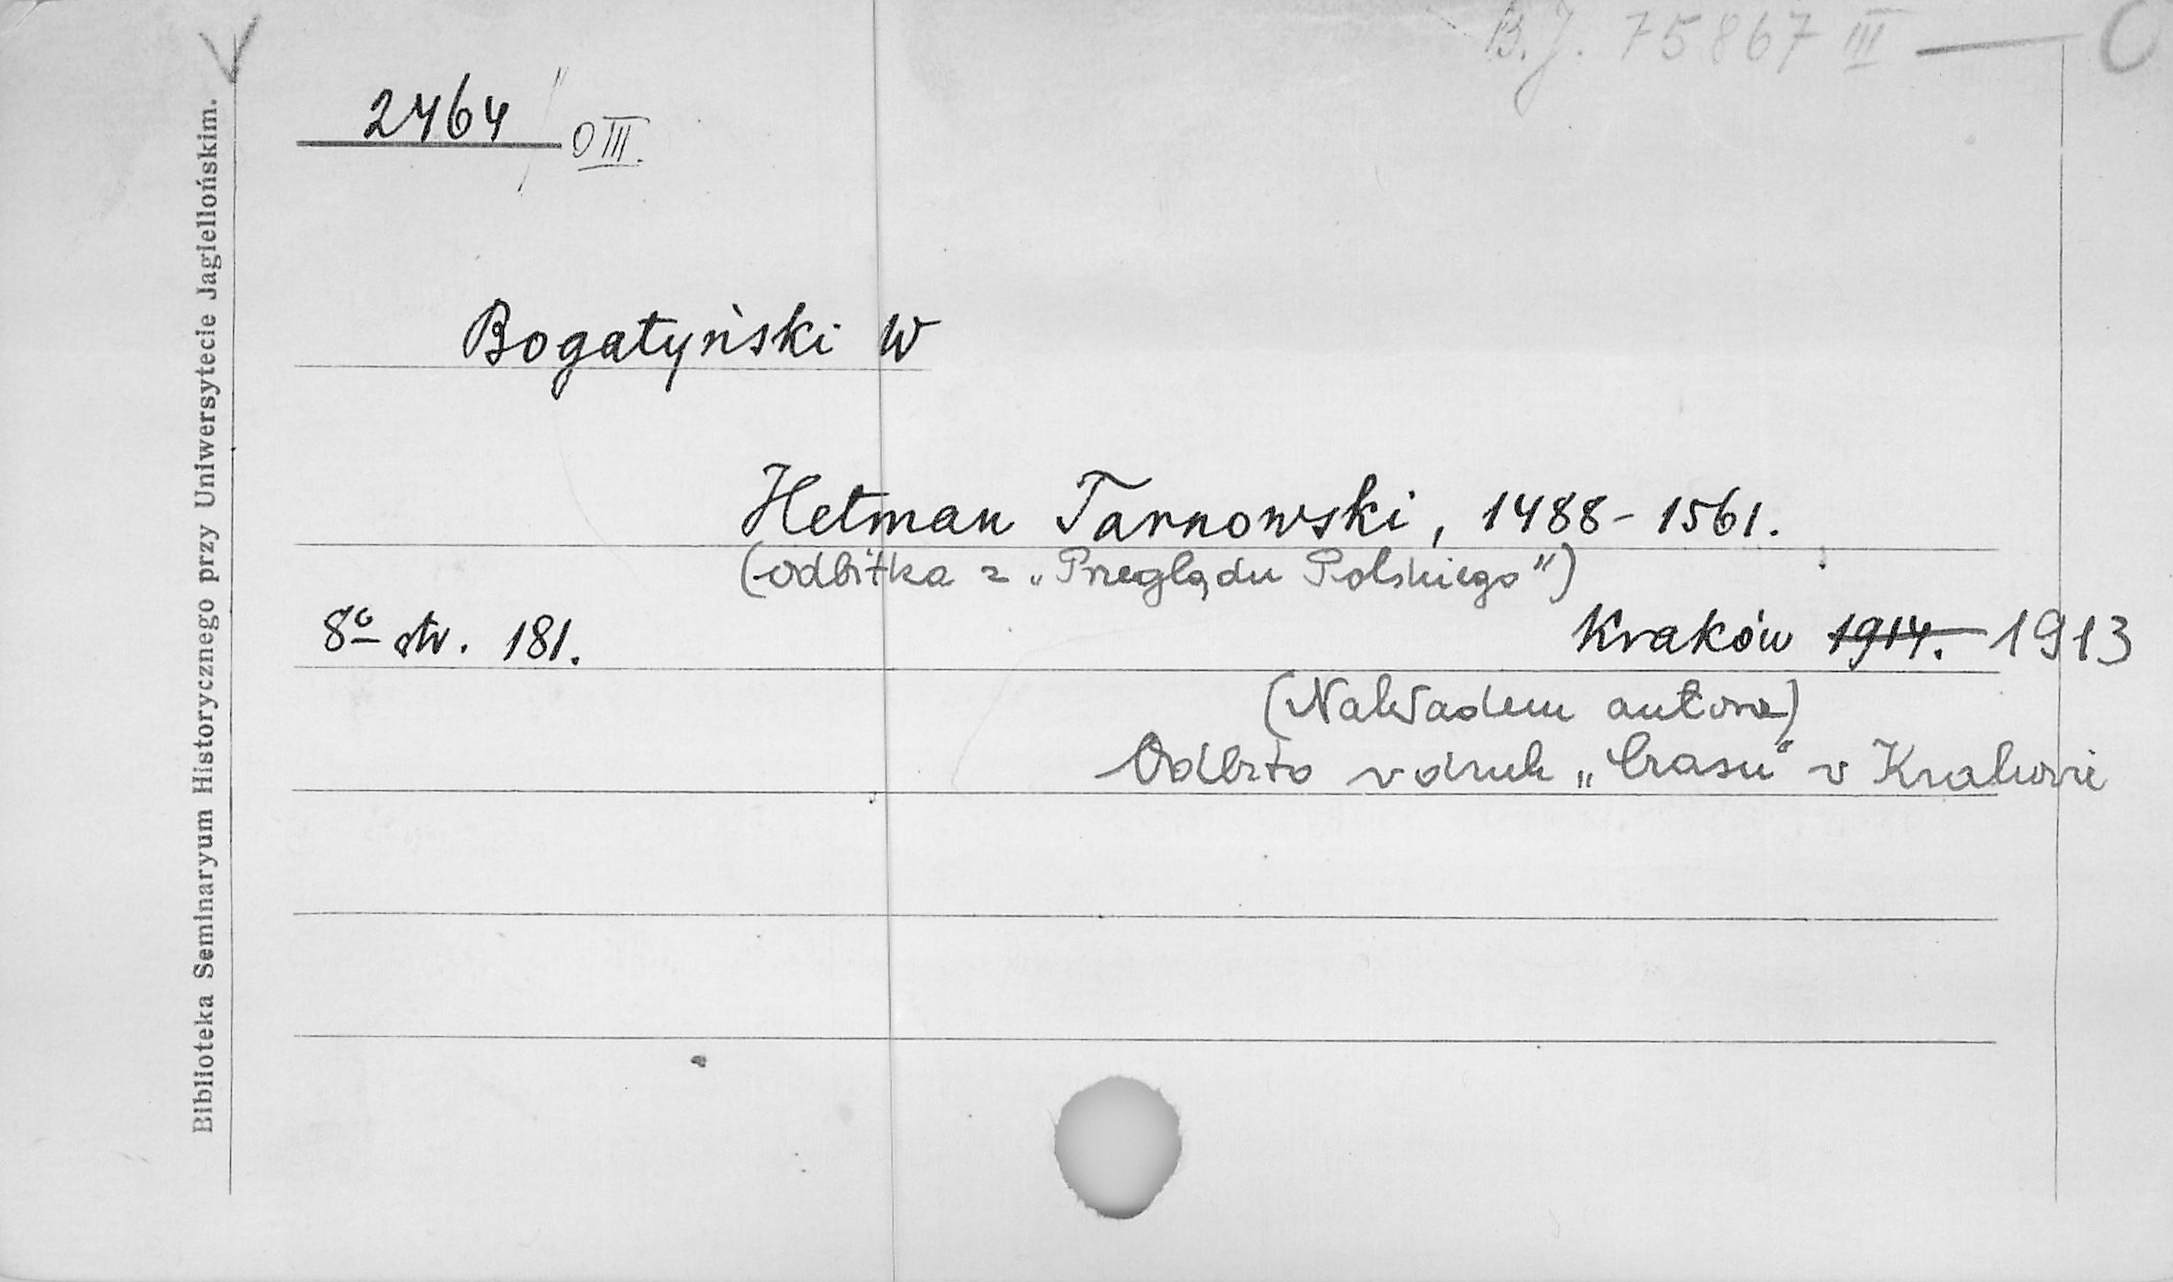 B.J. 75867 III — O
2464 O III.
Bogatyński W
Hetman Tarnowski, 1488-1561.
(odbitka z „Przeglądu Polskiego")
8º str. 181.
Kraków 1914. 1913
(Nakładem autora)
Odbito w druk „Czasu" w Krakowie
Biblioteka Seminaryum Historycznego przy Uniwersytecie Jagiellońskim.